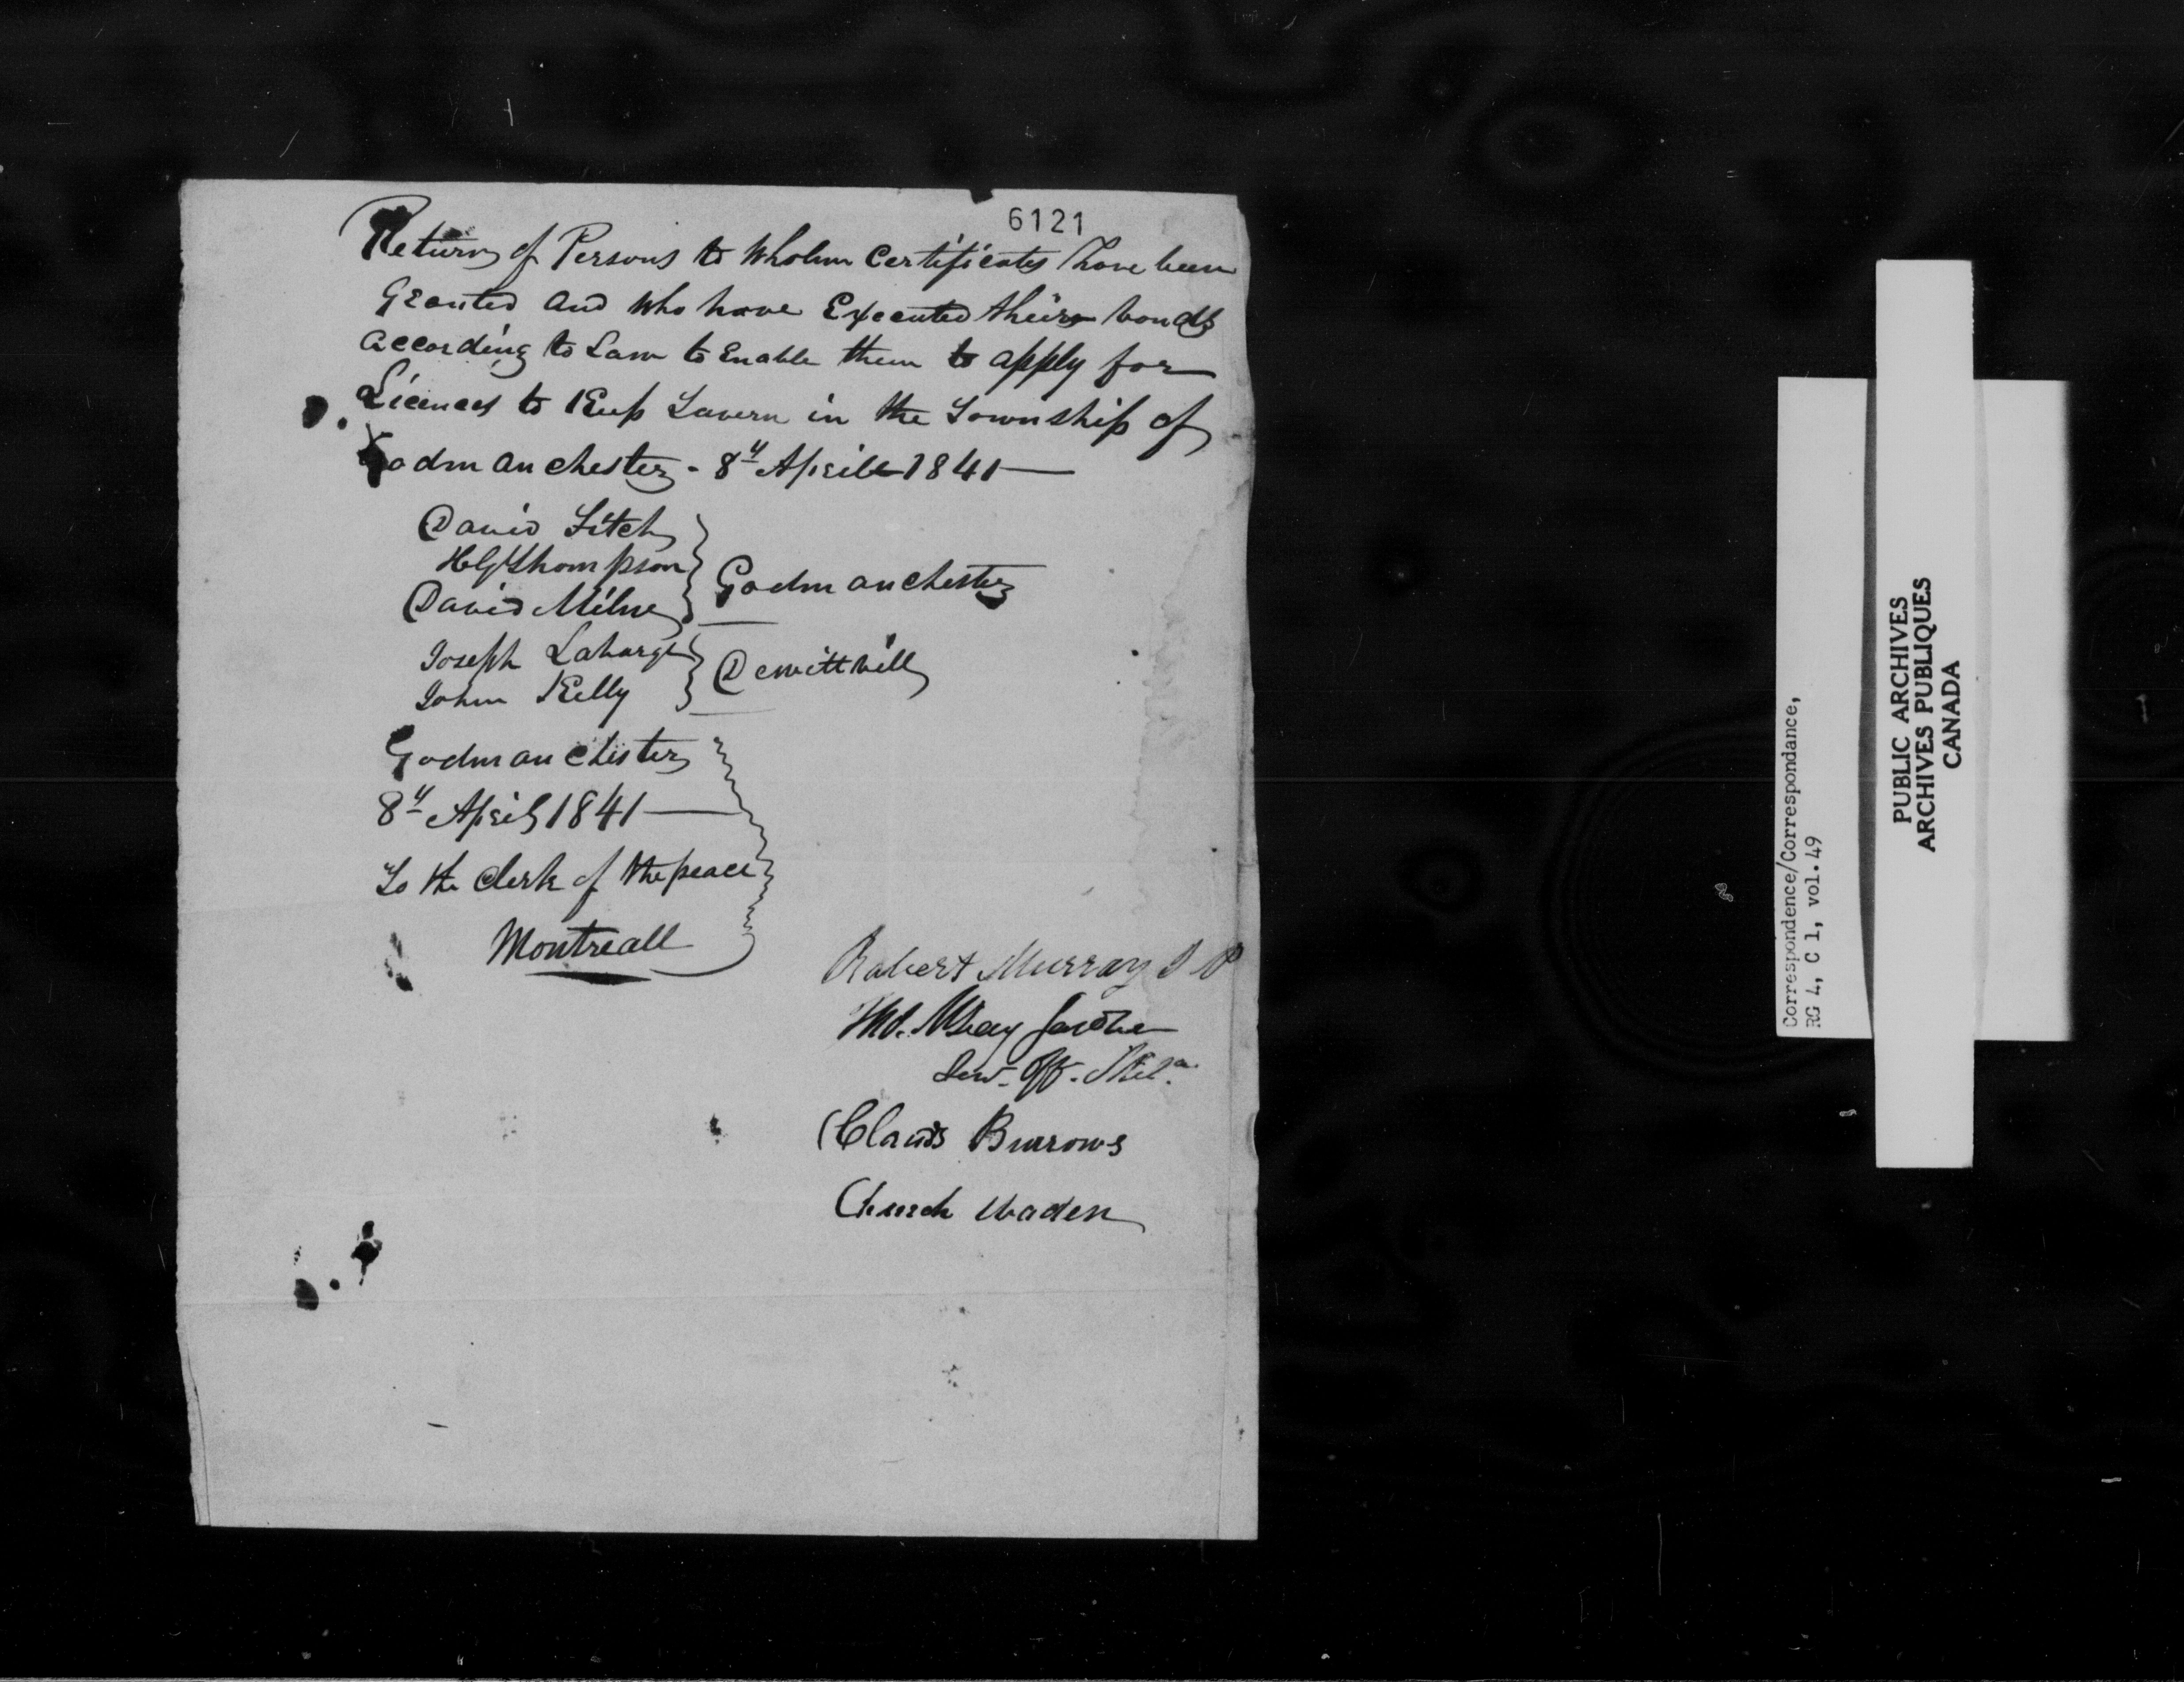 6121
Return of Persons to Wholm Certificates have been
Granted and Who have Executed their bonds
according to Law to Enable them to apply for
Licences to Keep Tavern in the Township of
Godmanchester - 8th Aprile 1841
David Fitch
H G Thompson
David Milne
Godmanchester
Joseph Labarge
John Kelly
Dewittvill
Godmanchester
8th April 1841
To the Clerk of the peace
Montreall
Robert Murray J P
Sen. Off. Mila
Claud Burrows
Church Waden
Correspondence/Correspondance,
RG 4, C 1, vol.49
PUBLIC ARCHIVES
ARCHIVES PUBLIQUES
CANADA